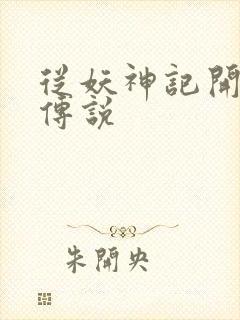 從妖神記開
傳說
朱開央